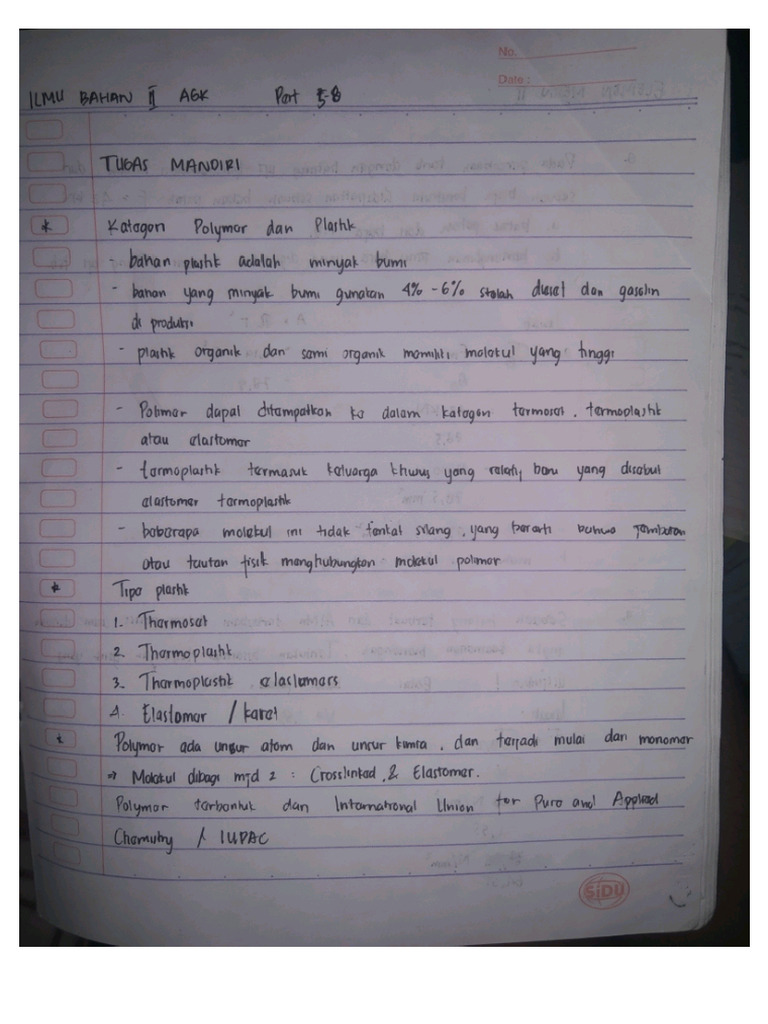 No.
Date :
ILMU BAHAN II AGK Part 5-8
TUGAS MANDIRI
* Katagori Polymer dan Plastik
- bahan plastik adalah minyak bumi
- bahan yang minyak bumi gunakan 4% - 6% setelah diesel dan gasolin
di produksi
- plastik organik dan semi organik memiliki molekul yang tinggi
- Polimer dapat ditempatkan ke dalam katagori termoset, termoplastik
atau elastomer
- termoplastik termasuk keluarga khusus yang relatif baru yang disebut
elastomer termoplastik
- beberapa molekul ini tidak terikat silang, yang berarti bahwa jembatan
atau tautan fisik menghubungkan molekul polimer
* Tipe plastik
1. Thermoset
2. Thermoplastik
3. Thermoplastik elastomers
4. Elastomer / karet
* Polymer ada unsur atom dan unsur kimia, dan terjadi mulai dari monomer
⇒ Molekul dibagi mjd 2 : Crosslinked, & Elastomer.
Polymer terbentuk dari International Union for Pure and Applied
Chemistry / IUPAC
SIDU